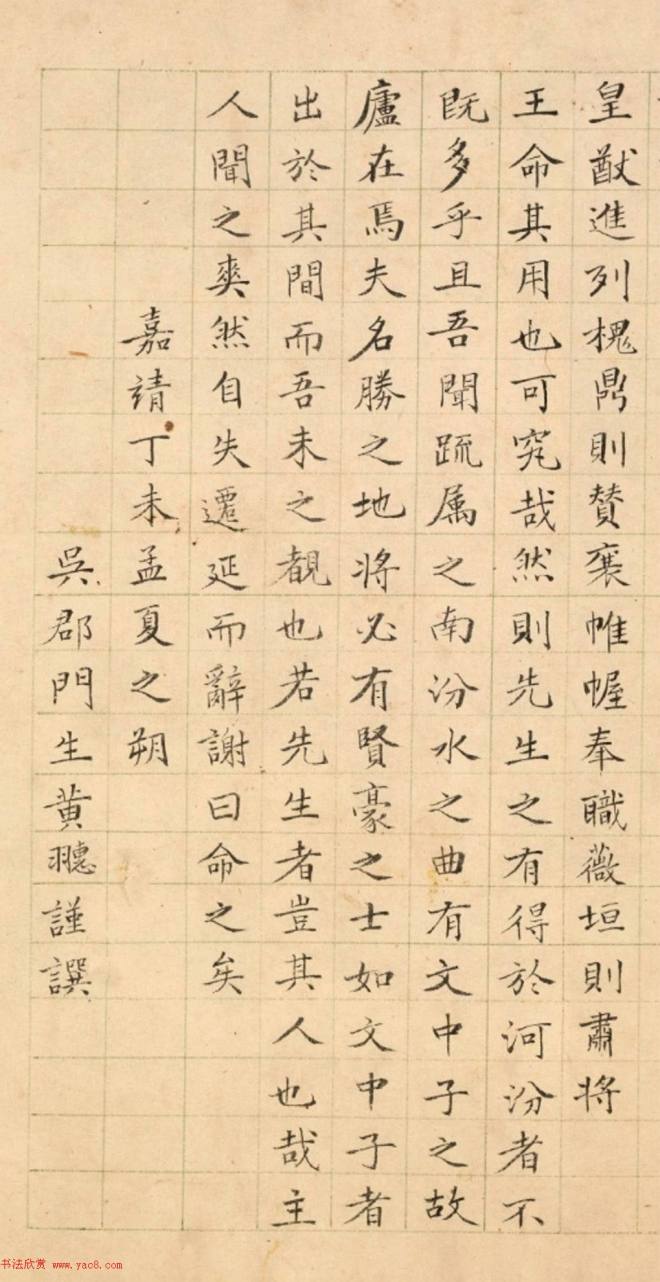 皇猷進列槐鼎則贊襄帷幄奉職薇垣則肅將
王命其用也可究哉然則先生之有得於河汾者不
既多乎且吾聞疏属之南汾水之曲有文中子之故
廬在焉夫名勝之地將必有賢豪之士如文中子者
出於其間而吾未之覩也若先生者豈其人也哉主
人聞之爽然自失遷延而辭謝曰命之矣
嘉靖丁未孟夏之朔
吳郡門生黄謹譔
书法欣赏 www.yac8.com